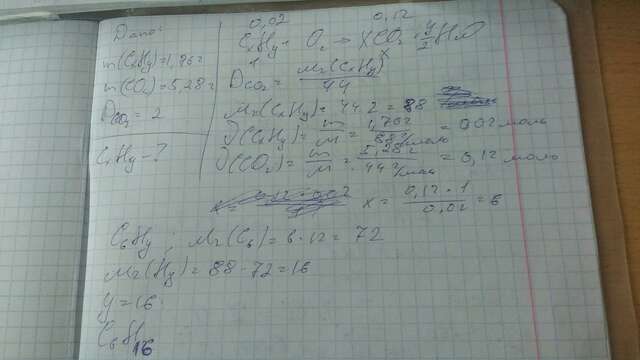 Дано:
m(CxHy)=1,76г
m(CO₂)=5,28г
Dco₂=2
CxHy-?
0,02 0,12
CxHy + O₂ → XCO₂ + y/2 H₂O
1 x
Dco₂ = Mr(CxHy)/44
Mr(CxHy)=44·2=88
ν(CxHy)= m/M = 1,76г/88г/моль = 0,02 моль
ν(CO₂)= m/M = 5,28г/44г/моль = 0,12 моль
x = 0,12·1/0,02 = 6
C₆Hy ; Mr(C₆)=6·12=72
Mr(Hy)=88-72=16
y=16
C₆H₁₆